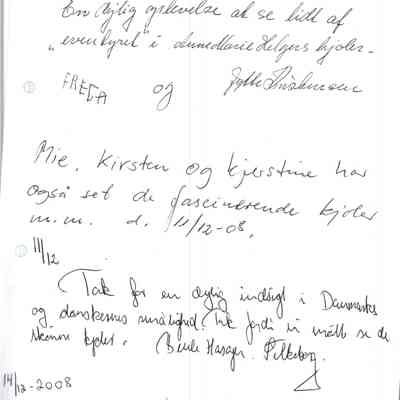 En dejlig oplevelse at se lidt af
"eventyret" i Anne Marie Helgers kjoler -
FREGA og Jytte
Mie, Kirsten og Kjerstine har
også set de fascinerende kjoler
m.m. d. 11/12-08.
11/12
Tak for en dejlig indsigt i Danmarks
og danskernes smålighed. Tak fordi vi måtte se de
skønne kjoler.
14/12-2008